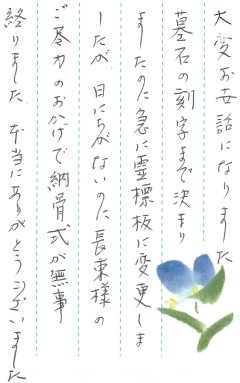 大変お世話になりました
墓石の刻字まで決まり
ましたのに急に霊標板に変更しま
したが、日にちがないのに長束様の
ご尽力のおかげで納骨式が無事
終りました 本当にありがとうございました